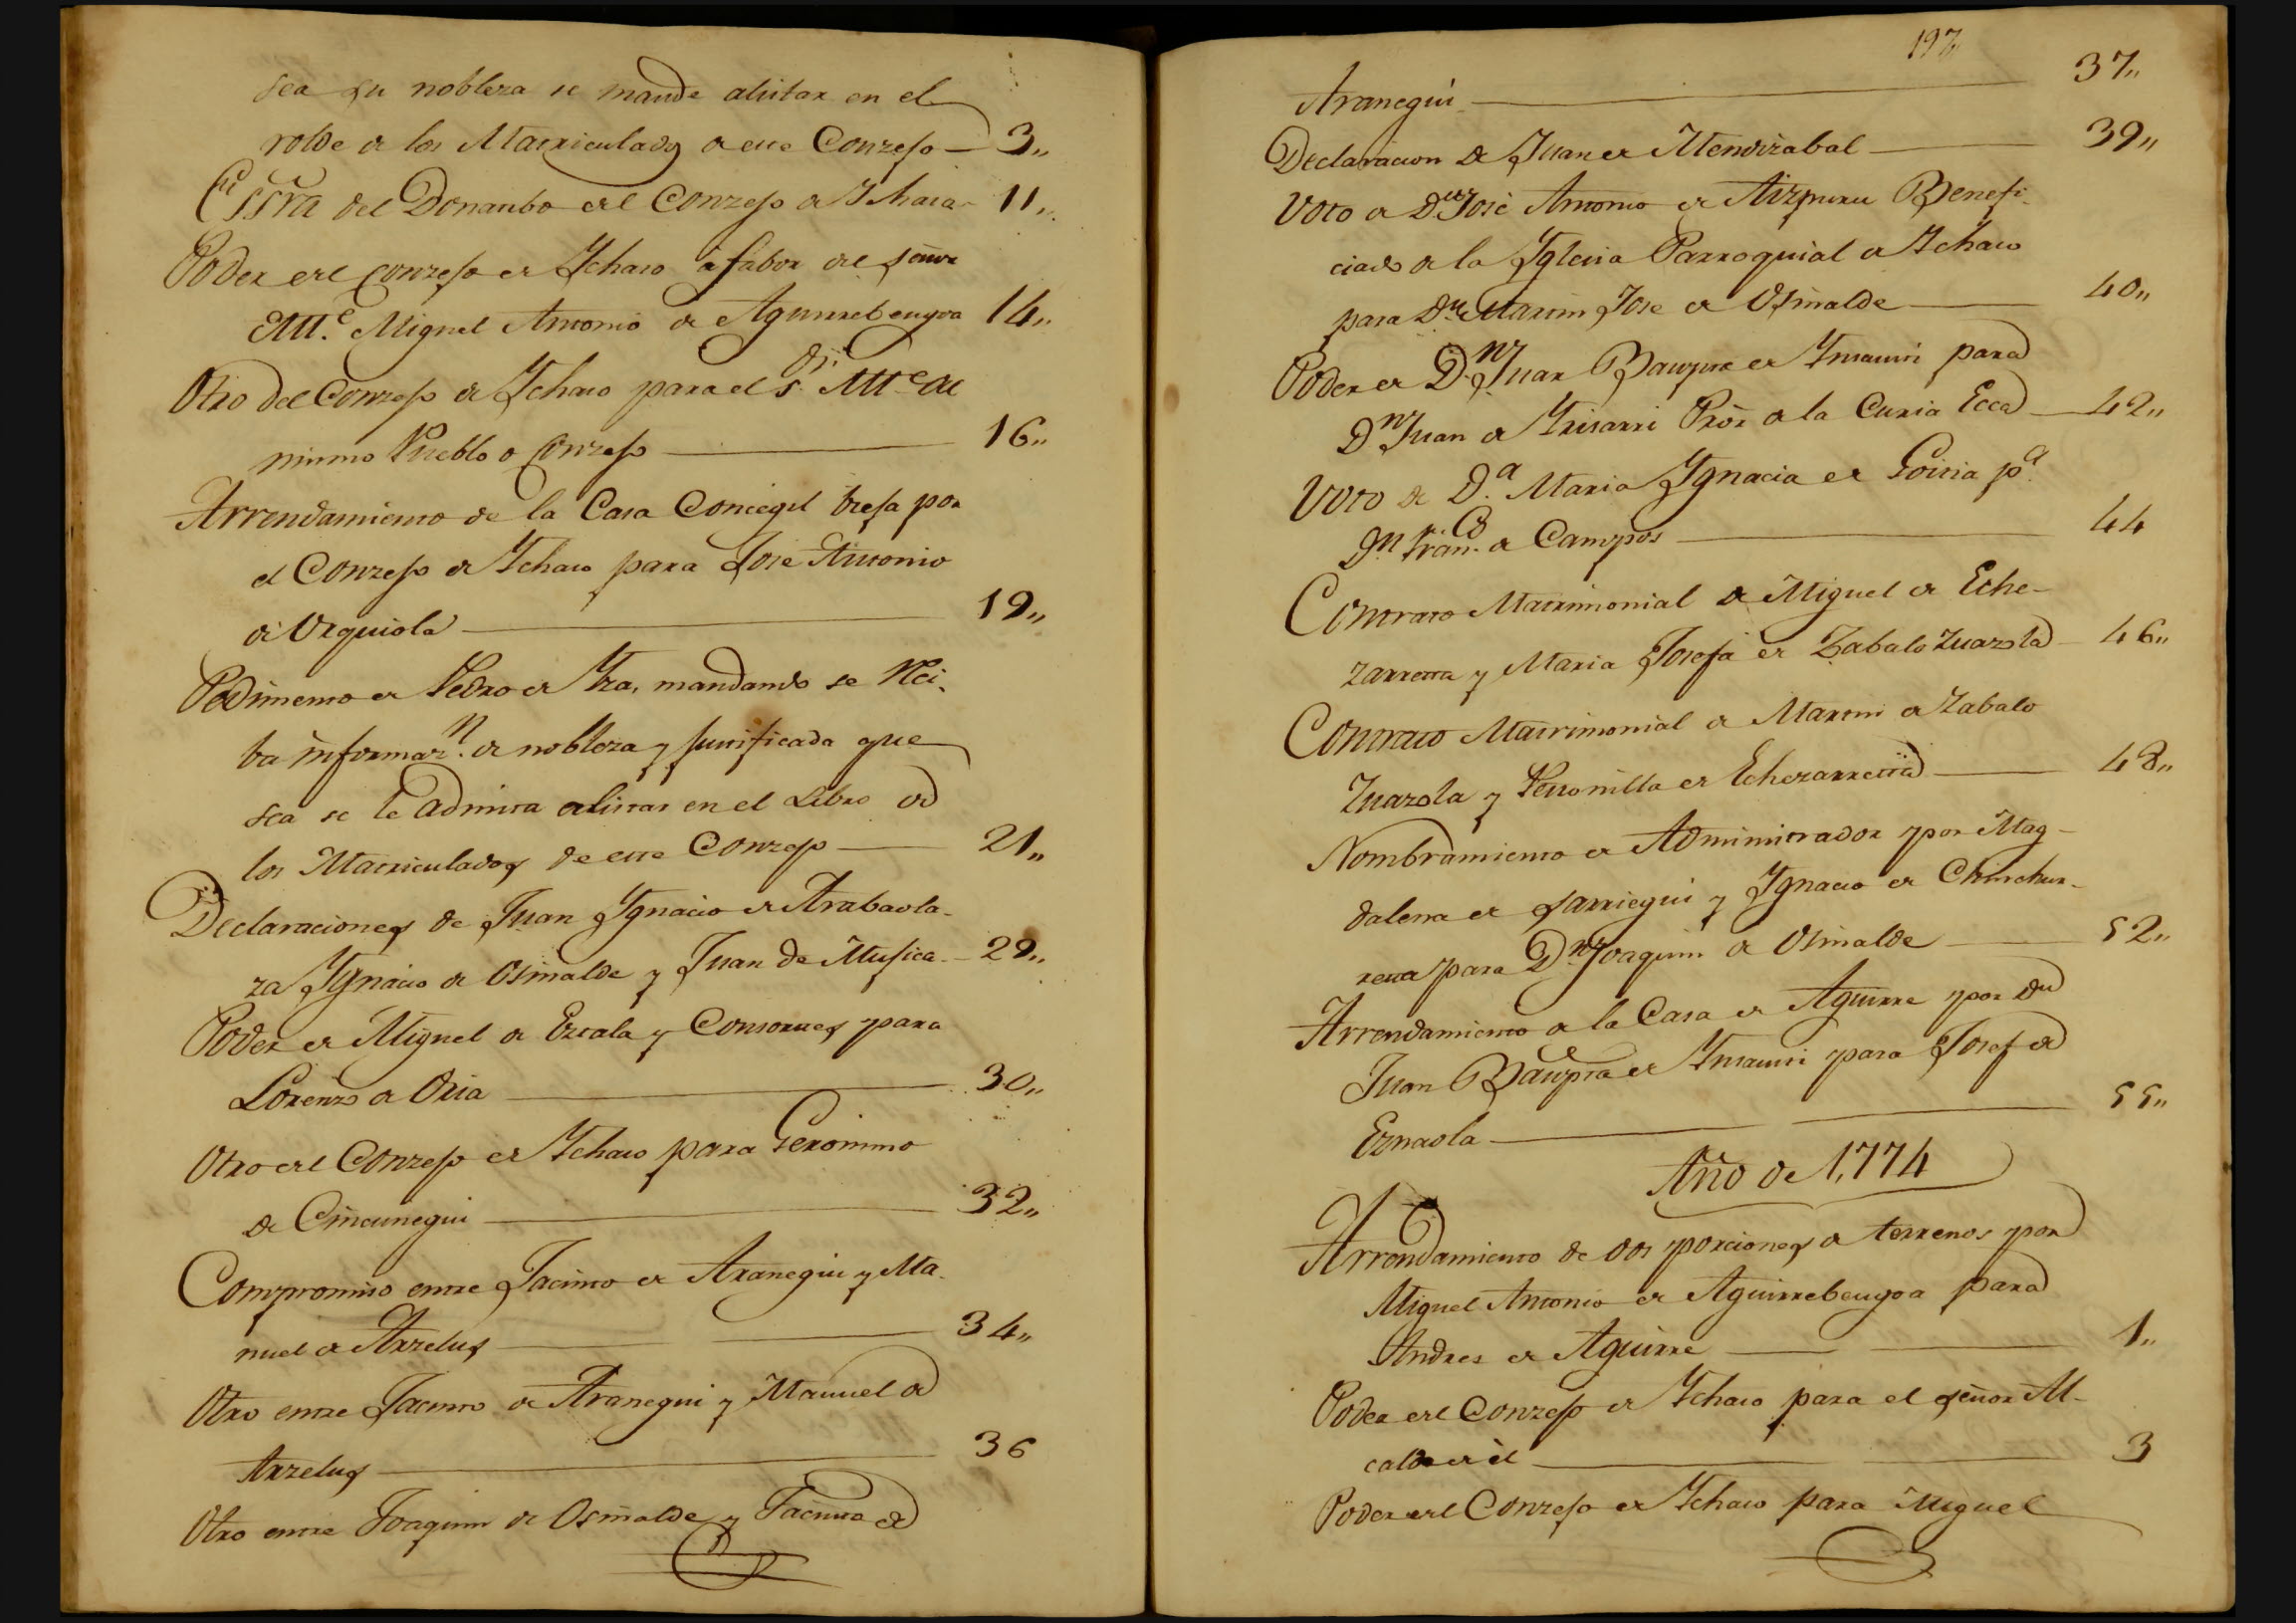 sea su nobleza se mande alistar en el
rolde de los Matriculados de este Conzejo — 3,,
Essrã del Donanbo del Conzejo de Ychaso 11,,
Poder del conzejo de Ychaso á fabor del señor
Allᵉ Miguel Antonio de Aguirrebengoa 14,,
Otro del Conzejo de Ychaso para el Sᵒʳ Allᵉ del
mismo Pueblo o Conzejo — 16,,
Arrendamiento de la Casa Concegil por
el Conzejo de Ychaso para Jose Antonio
de Urquiola — 19,,
Pedimento de Pedro de Yza, mandando se Reci-
ba informazⁿ. de nobleza y justificada que
sea se le admita alistar en el Libro de
los Matriculados de este Conzejo — 21,,
Declaraciones de Juan Ygnacio de Arabaola-
za Ygnacio de Osinalde y Juan de Mujica — 29,,
Poder de Miguel de Ezcala y Consortes para
Lorenzo de Oria — 30,,
Otro del Conzejo de Ychaso para Geronimo
de Cincunegui — 32,,
Compromiso entre Jacinto de Aranegui y Ma-
nuel de Arzelus — 34,,
Otro entre Jacinto de Aranegui y Manuel de
Arzelus — 36
Otro entre Joaquin de Osinalde y Jacinto de
197,,
Aranegui — 37,,
Declaracion de Juan de Mendizabal — 39,,
Voto de Dⁿ Josè Antonio de Aizpuru Benefi-
ciado de la Yglesia Parroquial de Ychaso
para Dⁿ Martin Jose de Osinalde — 40,,
Poder de Dⁿ Juan Baupta de Ynsausti para
Dⁿ Juan de Yrisarri Prõr de la Curia Ecca — 42,,
Voto de D.ᵃ Maria Ygnacia de Goiria pᵃ.
Dⁿ Franᶜᵒ de Campos — 44
Contrato Matrimonial de Miguel de Eche-
zarreta y Maria Josefa de Zabalo Zuazola — 46,,
Contrato Matrimonial de Martin de Zabalo
Zuazola y Petronilla de Echezarreta — 48,,
Nombramiento de Administrador por Mag-
dalena de Sarriegui y Ygnacio de Chinchur-
reta para Dⁿ Joaquin de Osinalde — 52,,
Arrendamiento de la Casa de Aguirre por Dⁿ
Juan Baupta de Ynsausti para Josef de
Eznaola — 55,,
Año de 1,774
Arrendamiento de dos porciones de terrenos por
Miguel Antonio de Aguirrebengoa para
Andres de Aguirre — 1,,
Poder del Conzejo de Ychaso para el señor Al-
calde de èl — 3
Poder del Conzejo de Ychaso para Miguel